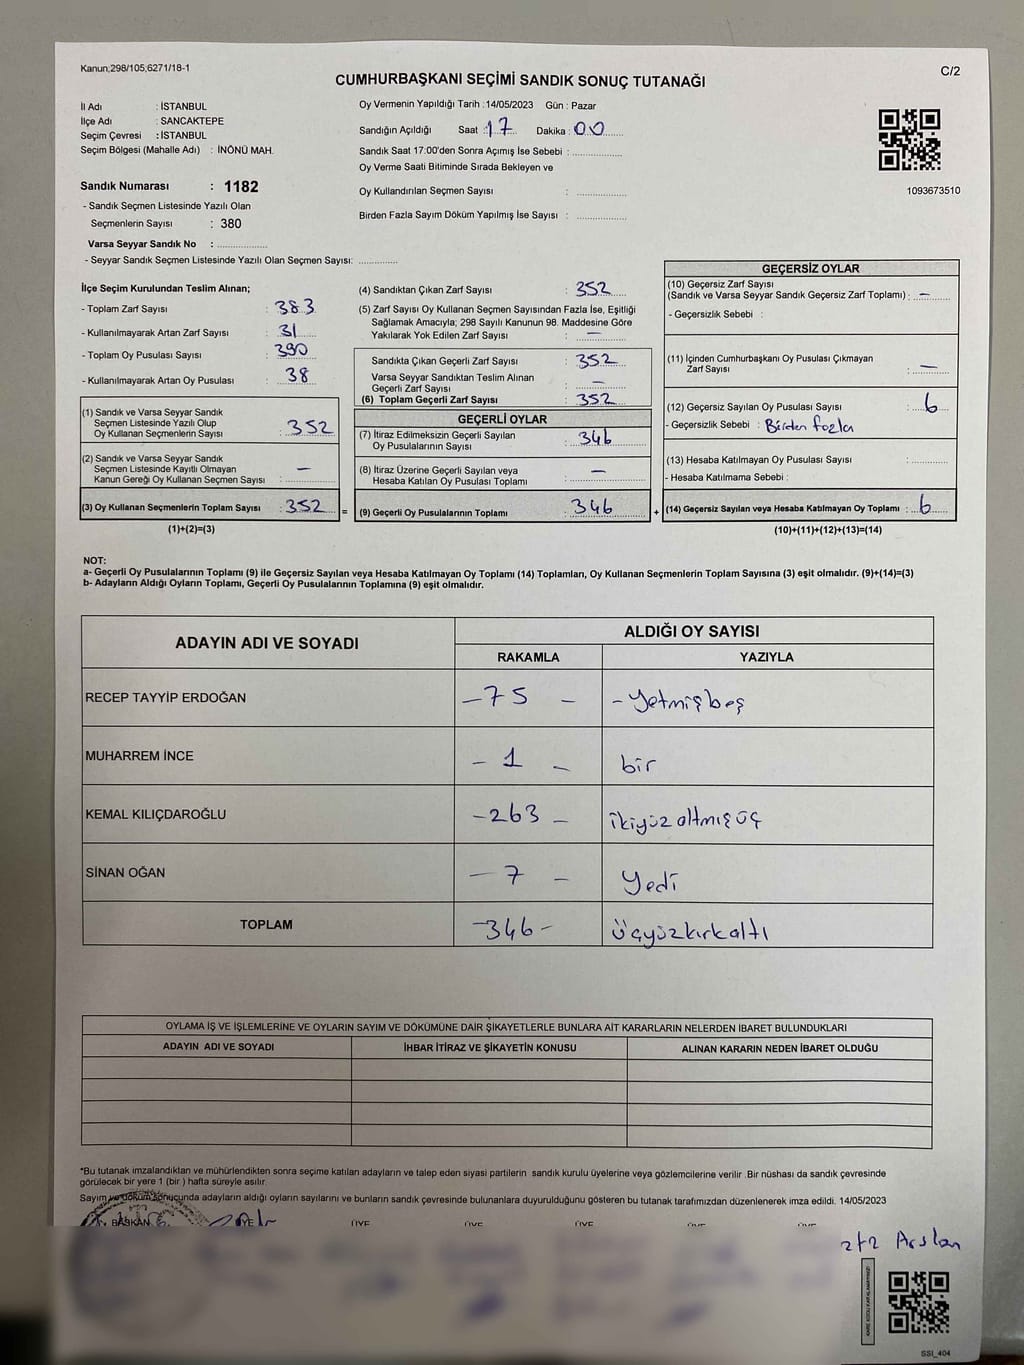 Kanun;298/105;6271/18-1
C/2
CUMHURBAŞKANI SEÇİMİ SANDIK SONUÇ TUTANAĞI
İl Adı : İSTANBUL
İlçe Adı : SANCAKTEPE
Seçim Çevresi : İSTANBUL
Seçim Bölgesi (Mahalle Adı) : İNÖNÜ MAH.
Sandık Numarası : 1182
- Sandık Seçmen Listesinde Yazılı Olan
Seçmenlerin Sayısı : 380
Varsa Seyyar Sandık No : ..................
- Seyyar Sandık Seçmen Listesinde Yazılı Olan Seçmen Sayısı: .............
Oy Vermenin Yapıldığı Tarih :14/05/2023 Gün : Pazar
Sandığın Açıldığı Saat : 17 Dakika : 00
Sandık Saat 17:00'den Sonra Açımış İse Sebebi : ..................
Oy Verme Saati Bitiminde Sırada Bekleyen ve
Oy Kullandırılan Seçmen Sayısı : ..................
Birden Fazla Sayım Döküm Yapılmış İse Sayısı : ..................
1093673510
İlçe Seçim Kurulundan Teslim Alınan;
- Toplam Zarf Sayısı : 383
- Kullanılmayarak Artan Zarf Sayısı : 31
- Toplam Oy Pusulası Sayısı : 390
- Kullanılmayarak Artan Oy Pusulası : 38
(1) Sandık ve Varsa Seyyar Sandık
Seçmen Listesinde Yazılı Olup
Oy Kullanan Seçmenlerin Sayısı : 352
(2) Sandık ve Varsa Seyyar Sandık
Seçmen Listesinde Kayıtlı Olmayan
Kanun Gereği Oy Kullanan Seçmen Sayısı : —
(3) Oy Kullanan Seçmenlerin Toplam Sayısı : 352 =
(1)+(2)=(3)
(4) Sandıktan Çıkan Zarf Sayısı : 352
(5) Zarf Sayısı Oy Kullanan Seçmen Sayısından Fazla İse, Eşitliği
Sağlamak Amacıyla; 298 Sayılı Kanunun 98. Maddesine Göre
Yakılarak Yok Edilen Zarf Sayısı : —
Sandıkta Çıkan Geçerli Zarf Sayısı : 352
Varsa Seyyar Sandıktan Teslim Alınan
Geçerli Zarf Sayısı : —
(6) Toplam Geçerli Zarf Sayısı : 352
GEÇERLİ OYLAR
(7) İtiraz Edilmeksizin Geçerli Sayılan
Oy Pusulalarının Sayısı : 346
(8) İtiraz Üzerine Geçerli Sayılan veya
Hesaba Katılan Oy Pusulası Toplamı : —
(9) Geçerli Oy Pusulalarının Toplamı : 346 +
GEÇERSİZ OYLAR
(10) Geçersiz Zarf Sayısı
(Sandık ve Varsa Seyyar Sandık Geçersiz Zarf Toplamı) : —
- Geçersizlik Sebebi :
(11) İçinden Cumhurbaşkanı Oy Pusulası Çıkmayan
Zarf Sayısı : —
(12) Geçersiz Sayılan Oy Pusulası Sayısı : 6
- Geçersizlik Sebebi : Birden fazla
(13) Hesaba Katılmayan Oy Pusulası Sayısı : .............
- Hesaba Katılmama Sebebi :
(14) Geçersiz Sayılan veya Hesaba Katılmayan Oy Toplamı : 6
(10)+(11)+(12)+(13)=(14)
NOT:
a- Geçerli Oy Pusulalarının Toplamı (9) ile Geçersiz Sayılan veya Hesaba Katılmayan Oy Toplamı (14) Toplamları, Oy Kullanan Seçmenlerin Toplam Sayısına (3) eşit olmalıdır. (9)+(14)=(3)
b- Adayların Aldığı Oyların Toplamı, Geçerli Oy Pusulalarının Toplamına (9) eşit olmalıdır.
ADAYIN ADI VE SOYADI ALDIĞI OY SAYISI
RAKAMLA YAZIYLA
RECEP TAYYİP ERDOĞAN - 75 - - Yetmişbeş
MUHARREM İNCE - 1 - bir
KEMAL KILIÇDAROĞLU - 263 - ikiyüz altmış üç
SİNAN OĞAN - 7 - Yedi
TOPLAM - 346 - Üçyüzkırkaltı
OYLAMA İŞ VE İŞLEMLERİNE VE OYLARIN SAYIM VE DÖKÜMÜNE DAİR ŞİKAYETLERLE BUNLARA AİT KARARLARIN NELERDEN İBARET BULUNDUKLARI
ADAYIN ADI VE SOYADI İHBAR İTİRAZ VE ŞİKAYETİN KONUSU ALINAN KARARIN NEDEN İBARET OLDUĞU
*Bu tutanak imzalandıktan ve mühürlendikten sonra seçime katılan adayların ve talep eden siyasi partilerin sandık kurulu üyelerine veya gözlemcilerine verilir. Bir nüshası da sandık çevresinde
görülecek bir yere 1 (bir ) hafta süreyle asılır.
Sayım ve döküm sonucunda adayların aldığı oyların sayılarını ve bunların sandık çevresinde bulunanlara duyurulduğunu gösteren bu tutanak tarafımızdan düzenlenerek imza edildi. 14/05/2023
BAŞKAN ÜYE ÜYE ÜYE ÜYE ÜYE ÜYE
Arslan
SSI_404